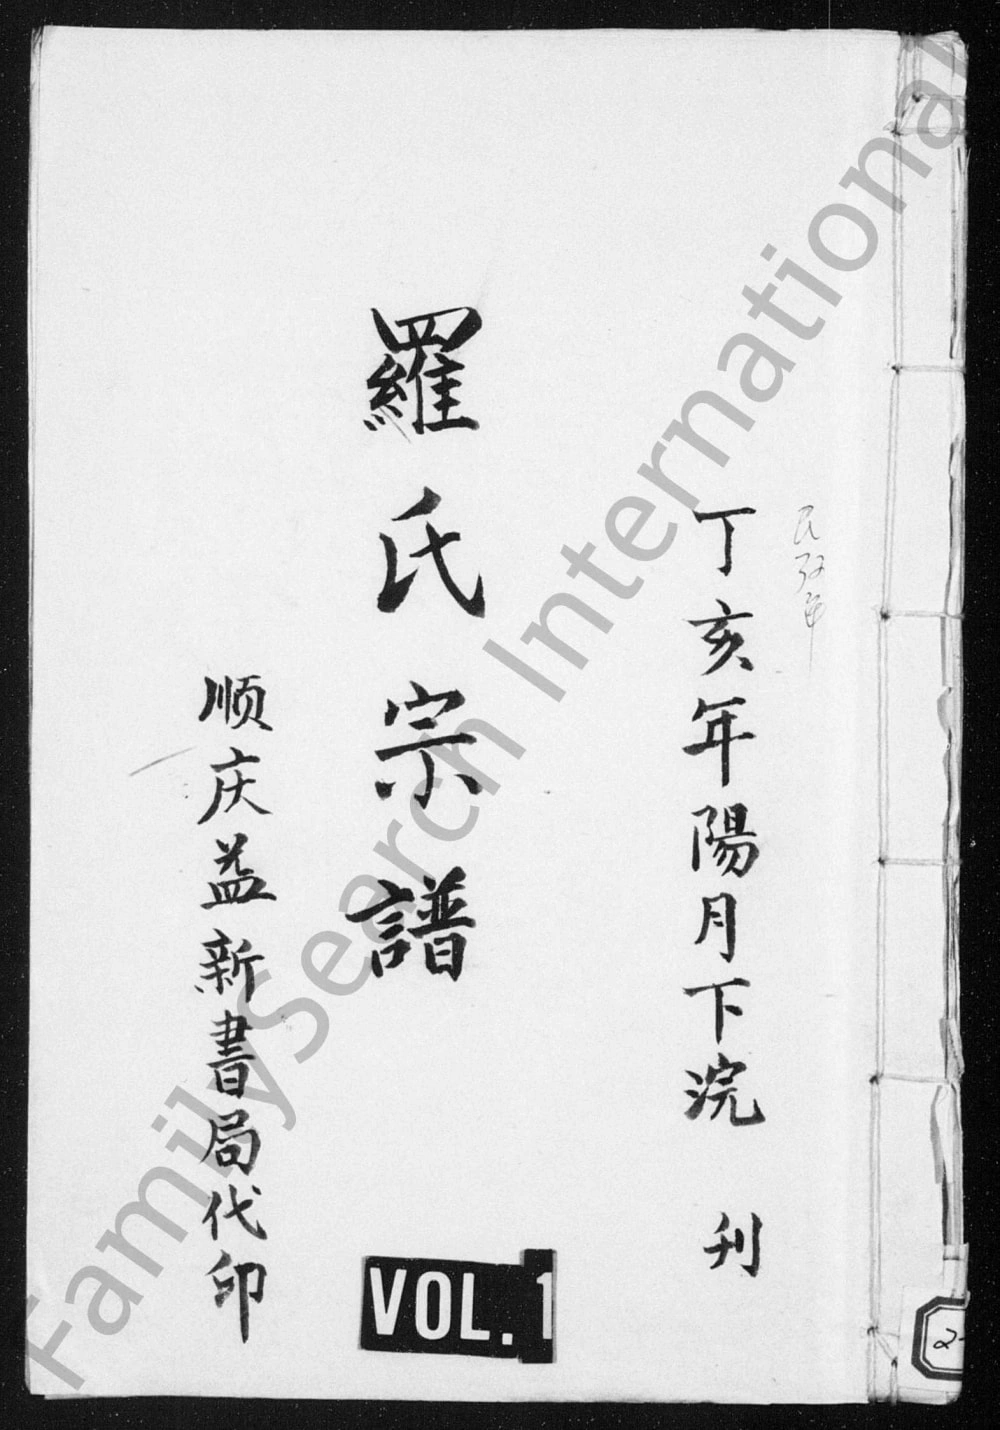 丁亥年陽月下浣 刊
羅氏宗譜
顺庆益新書局代印
VOL.1
2-
FamilySearch International